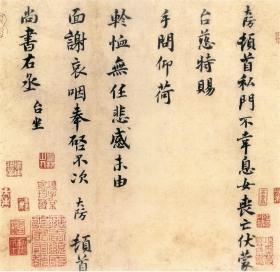 大防頓首私門不幸息女喪亡伏蒙
台慈特賜
手問仰荷
軫恤無任悲感末由
面謝哀咽奉啓不次 大防 頓首
尚書右丞 台坐